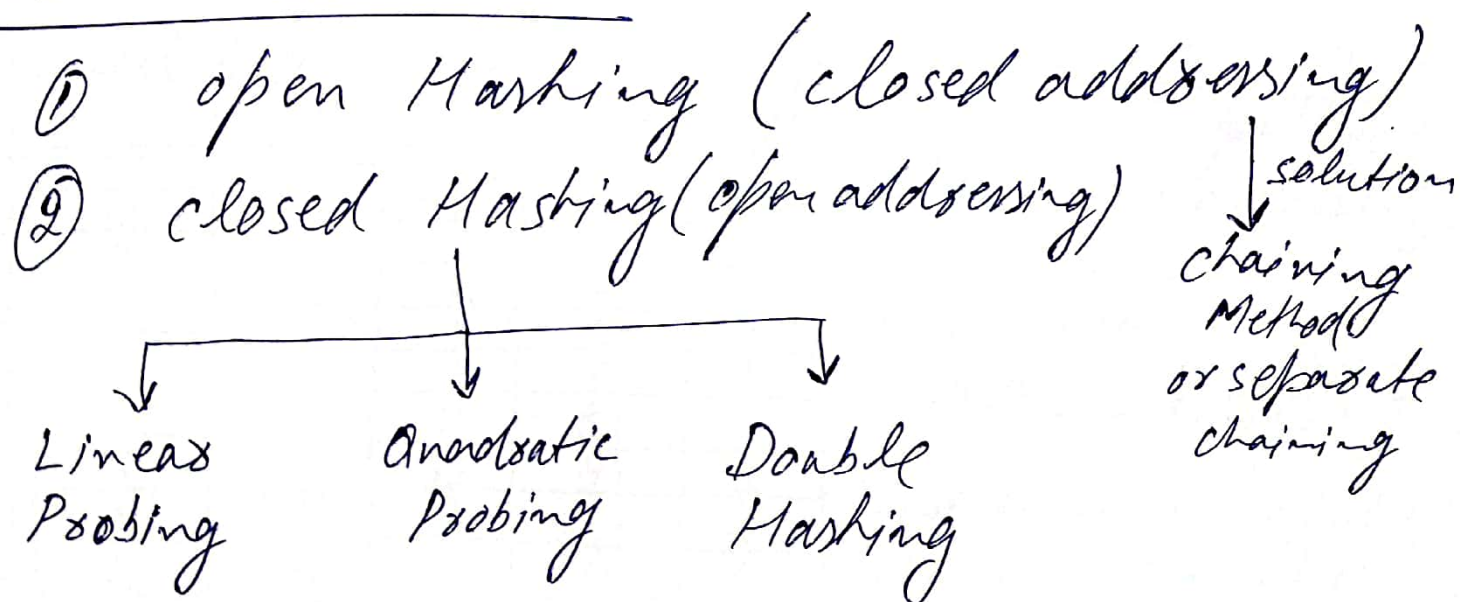 ① open Hashing (closed addressing)
② closed Hashing (open addressing)
solution
chaining
Method
or separate
chaining
Linear
Probing
Quadratic
Probing
Double
Hashing